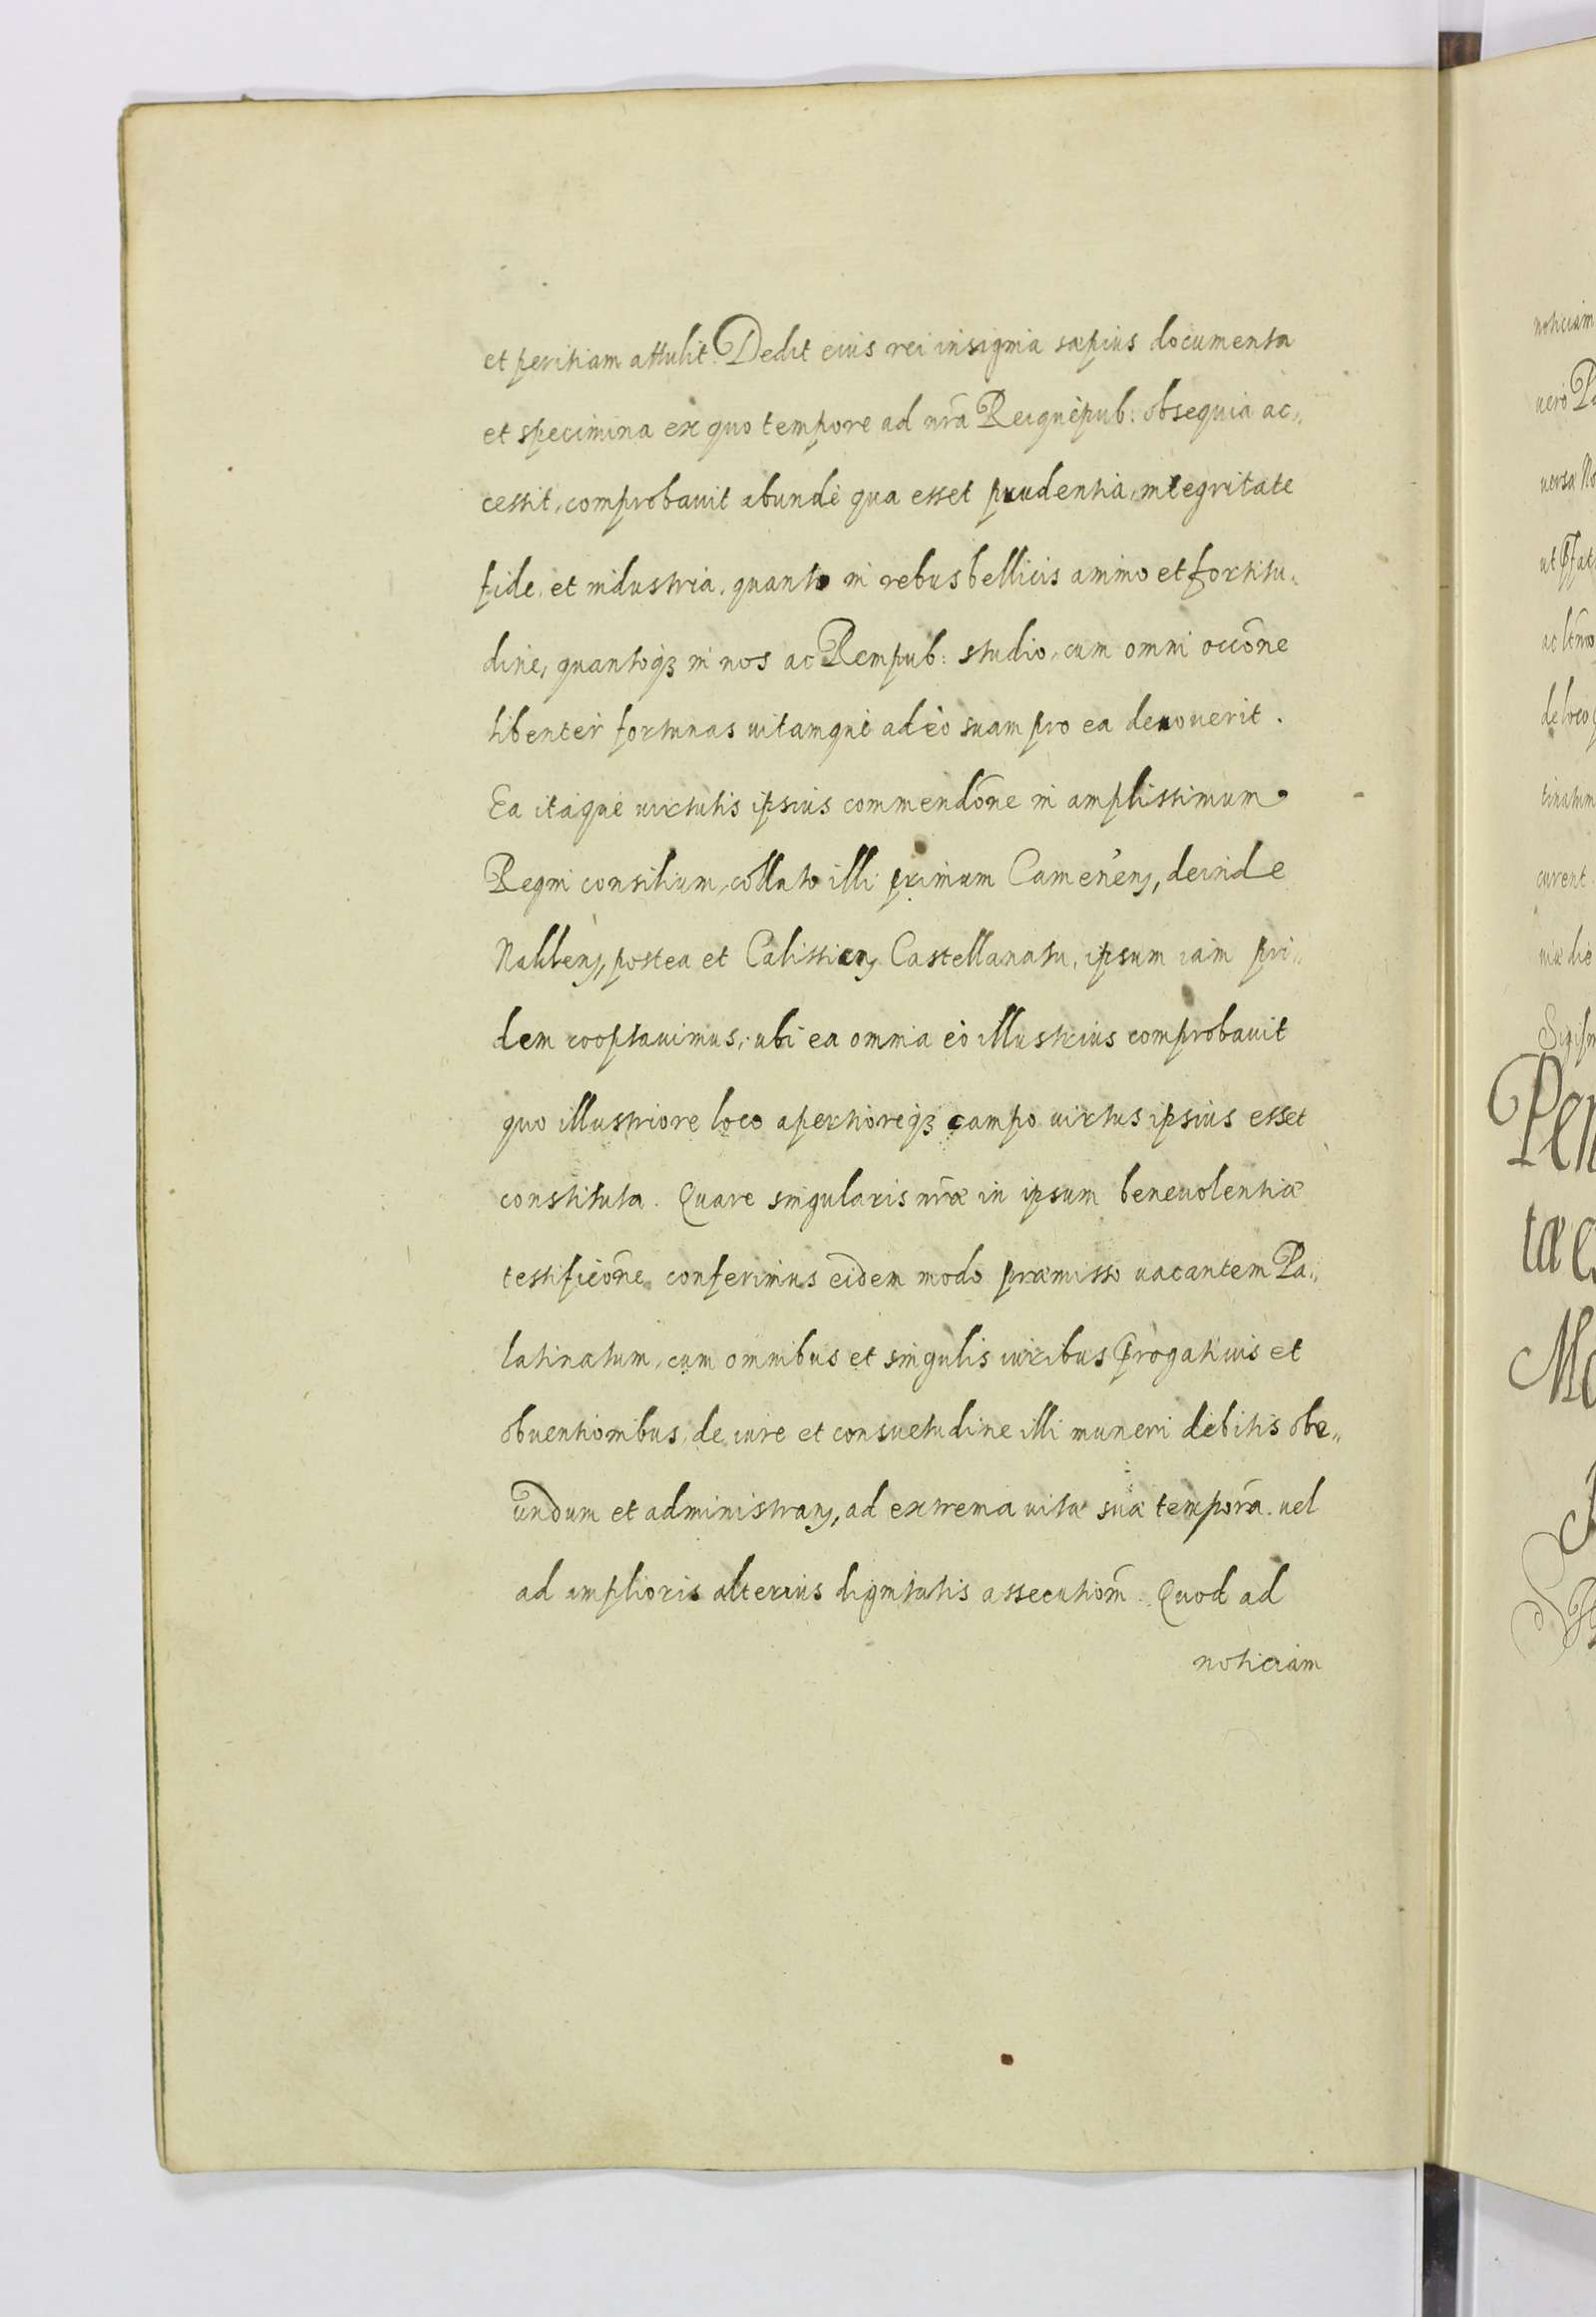 et peritiam attulit. Dedit eius rei insignia sæpius documenta
et specimina ex quo tempore ad nr̃a Reiquèpub: obsequia ac„
cessit, comprobavit abundè qua esset prudentia, integritate
fide, et industria, quanto in rebus bellicis animo et fortitu„
dine, quantoqꝫ in nos ac Rempub: studio, cum omni occõne
libenter fortunas uitamquè adeò suam pro ea deuouerit.
Ea itaque uirtutis ipsius commendõne in amplissimum
Regni consilium, collato illi primum Camenenꝭ, deinde
Naklienꝭ, postea et Calissienꝭ Castellanatu, ipsum iam pri„
dem cooptauimus, ubi ea omnia eò illustrius comprobauit
quo illustriore loco apertioreqꝫ campo uirtus ipsius esset
constituta. Quare singularis nr̃æ in ipsum beneuolentiæ
testificõne conferimus eidem modo præmisso uacantem Pa„
latinatum, cum omnibus et singulis iuribus ꝓrogatiuis et
obuentionibus, de iure et consuetudine illi muneri debitis obe„
undum et administranꝭ, ad extrema uitæ suæ tempora. uel
ad amplioris alterius dignitatis assecutiom̃. Quod ad
noticiam
noticiam
uerò
uersæ
ac
de loco
tinatum
curent
Sigism
Pen
Mo